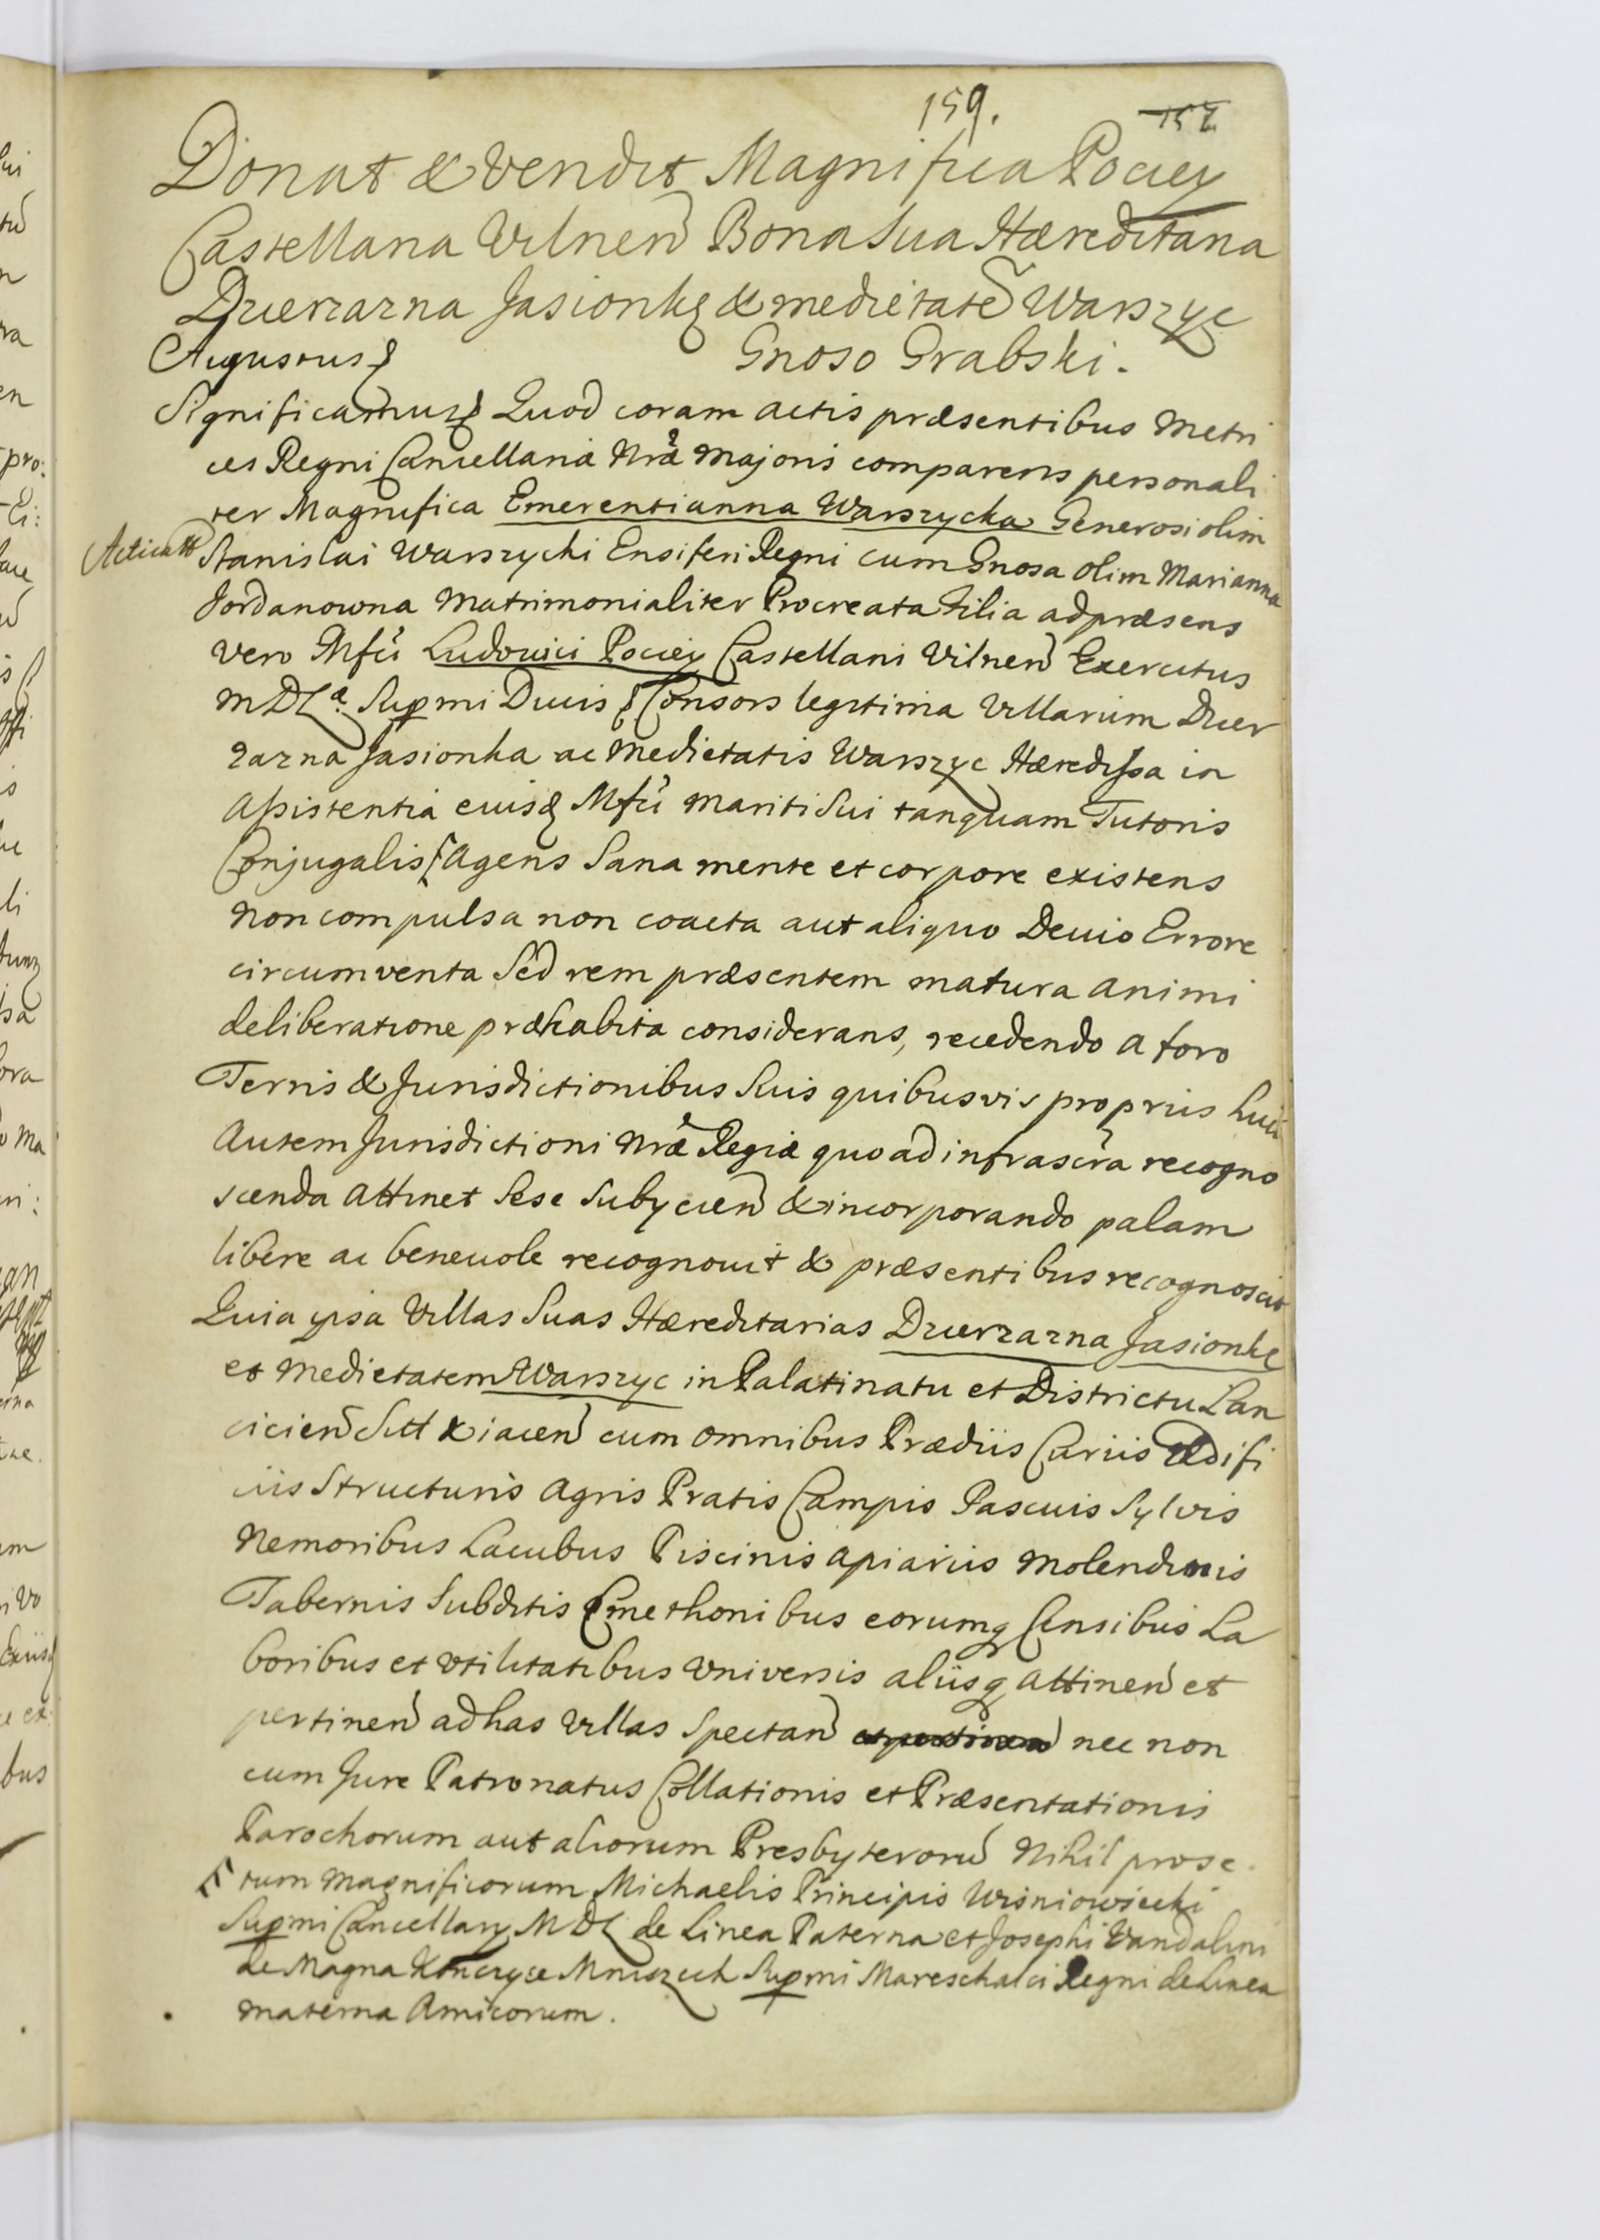 159. 157.
Donat & vendit Magnifica Pociey
Castellana Vilnen Bona Sua Hæreditaria
Dzierzazna Jasionkę & medietatē Warszyc
Augustus & Gnoso Grabski.
Significamus & Quod coram actis præsentibus Metri
ces Regni Cancellariæ Nræ Majoris comparens personali
ter Magnifica Emerentianna Warszycka Generosi olim
Stanislai Warszycki Ensiferi Regni cum Gnosa olim Marianna
Jordanowna Matrimonialiter Procreata Filia ad præsens
vero Mfci Ludovici Pociey Castellani Vilnen Exercitus
MDL Supmi Ducis & Consors legitima Villarum Dzier
zazna Jasionka ac Medietatis Warszyc Hæredissa in
Assistentia eiusq Mfci mariti Sui tanquam Tutoris
Conjugalis Agens Sana mente et corpore existens
non compulsa non coacta aut aliquo Deuio Errore
circumventa Sed rem præsentem matura animi
deliberatione præhabita considerans, recedendo a foro
Terris & Jurisdictionibus Suis quibusvis propriis huic
Autem Jurisdictioni Nræ Regiæ quo ad infrascra recogno
scenda Attinet Sese Subycien & incorporando palam
libere ac beneuole recognouit & præsentibus recognoscit
Quia ipsa Villas Suas Hæreditarias Dzierzazna Jasionkę
et Medietatem Warszyc in Palatinatu et Districtu Lan
cicien Sitt & iacen cum omnibus Prædiis Curiis Ædifi
ciis Structuris Agris Pratis Campis Pascuis Sylvis
Nemoribus Lacubus Piscinis Apiariis Molendinis
Tabernis Subditis Cmethonibus eorumq Censibus La
boribus et Vtilitatibus Vniversis aliisq Attinen et
pertinen ad has Villas Spectan et pertinen nec non
cum Jure Patronatus Collationis et Præsentationis
Parochorum aut aliorum Presbyteroru Nihil pro se
tum Magnificorum Michaelis Principis Wisniowiecki
Supmi Cancellary MDL de Linea Paterna et Josephi Vandalini
de Magna Konczyce Mniszech Supmi Mareschalci Regni de Linea
materna Amicorum.